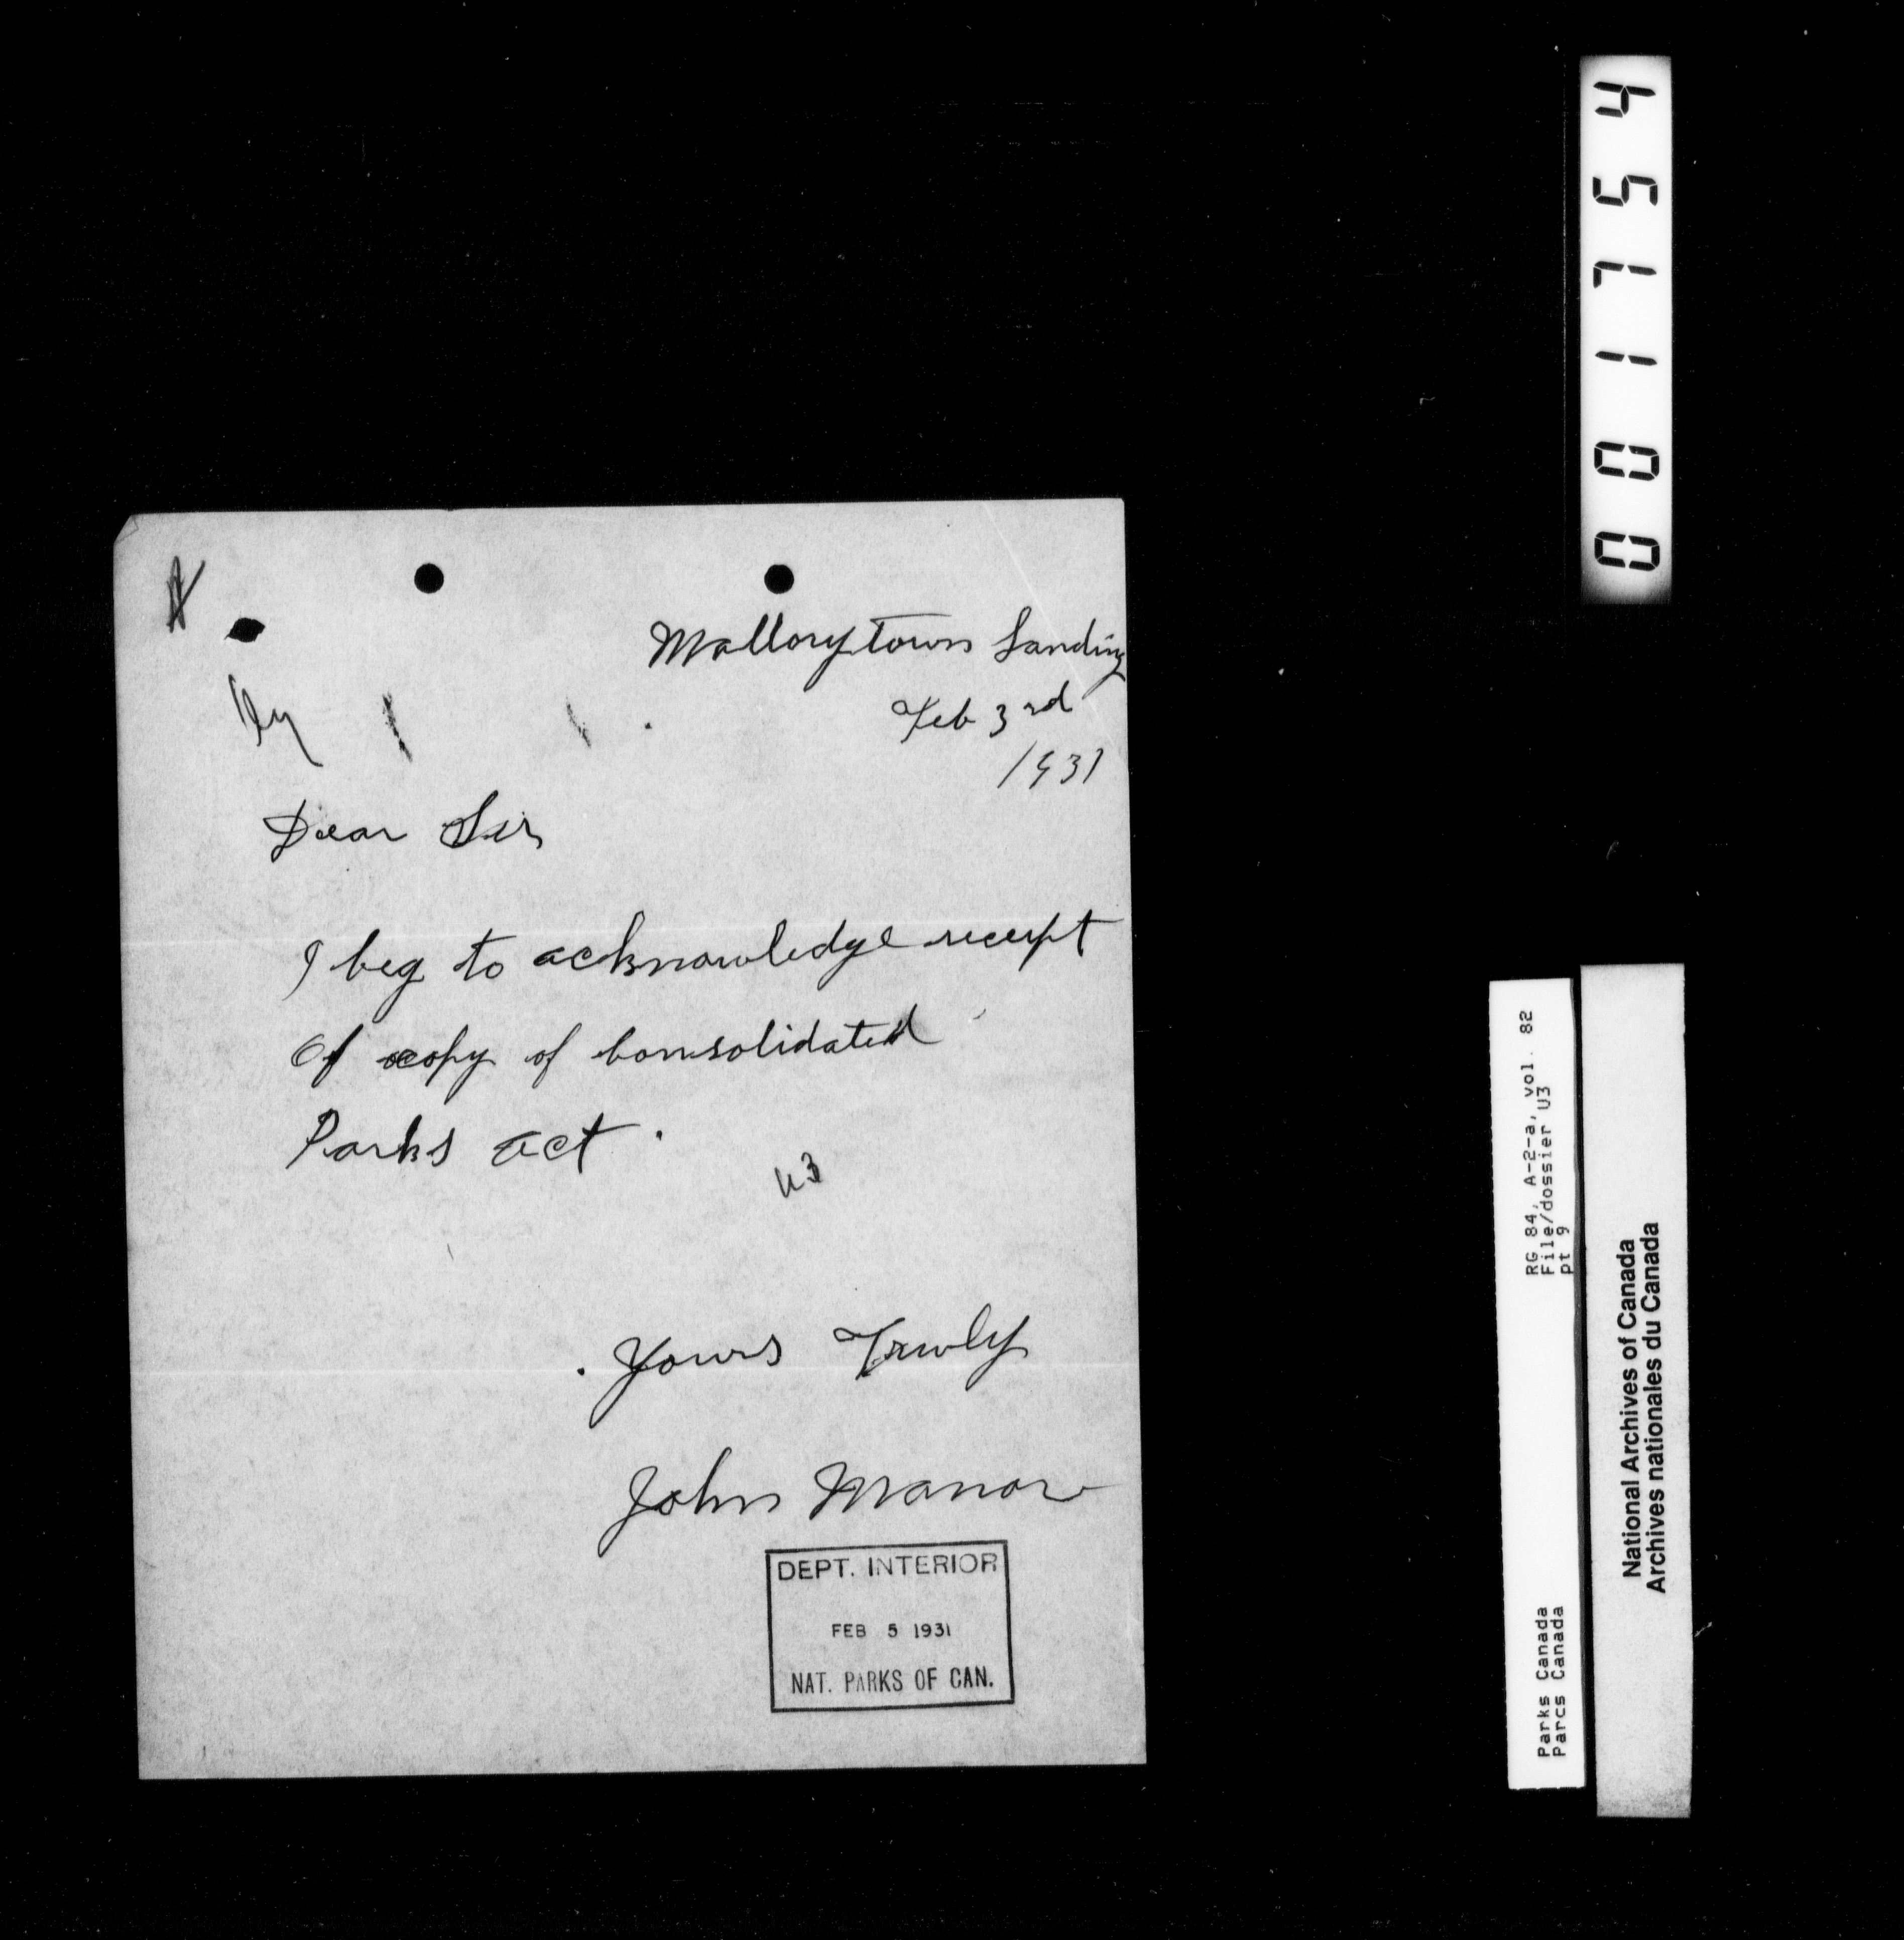 Mallorytown Landing
Feb 3rd
1931
Dear Sir
I beg to acknowledge receipt
Of copy of Consolidated
Parks act.
U3
Yours Truly
John Manor
DEPT. INTERIOR
FEB 5 1931
NAT. PARKS OF CAN.
001754
RG 84, A-2-a, vol. 82
File/dossier U3
pt 9
Parks Canada
Parcs Canada
National Archives of Canada
Archives nationales du Canada